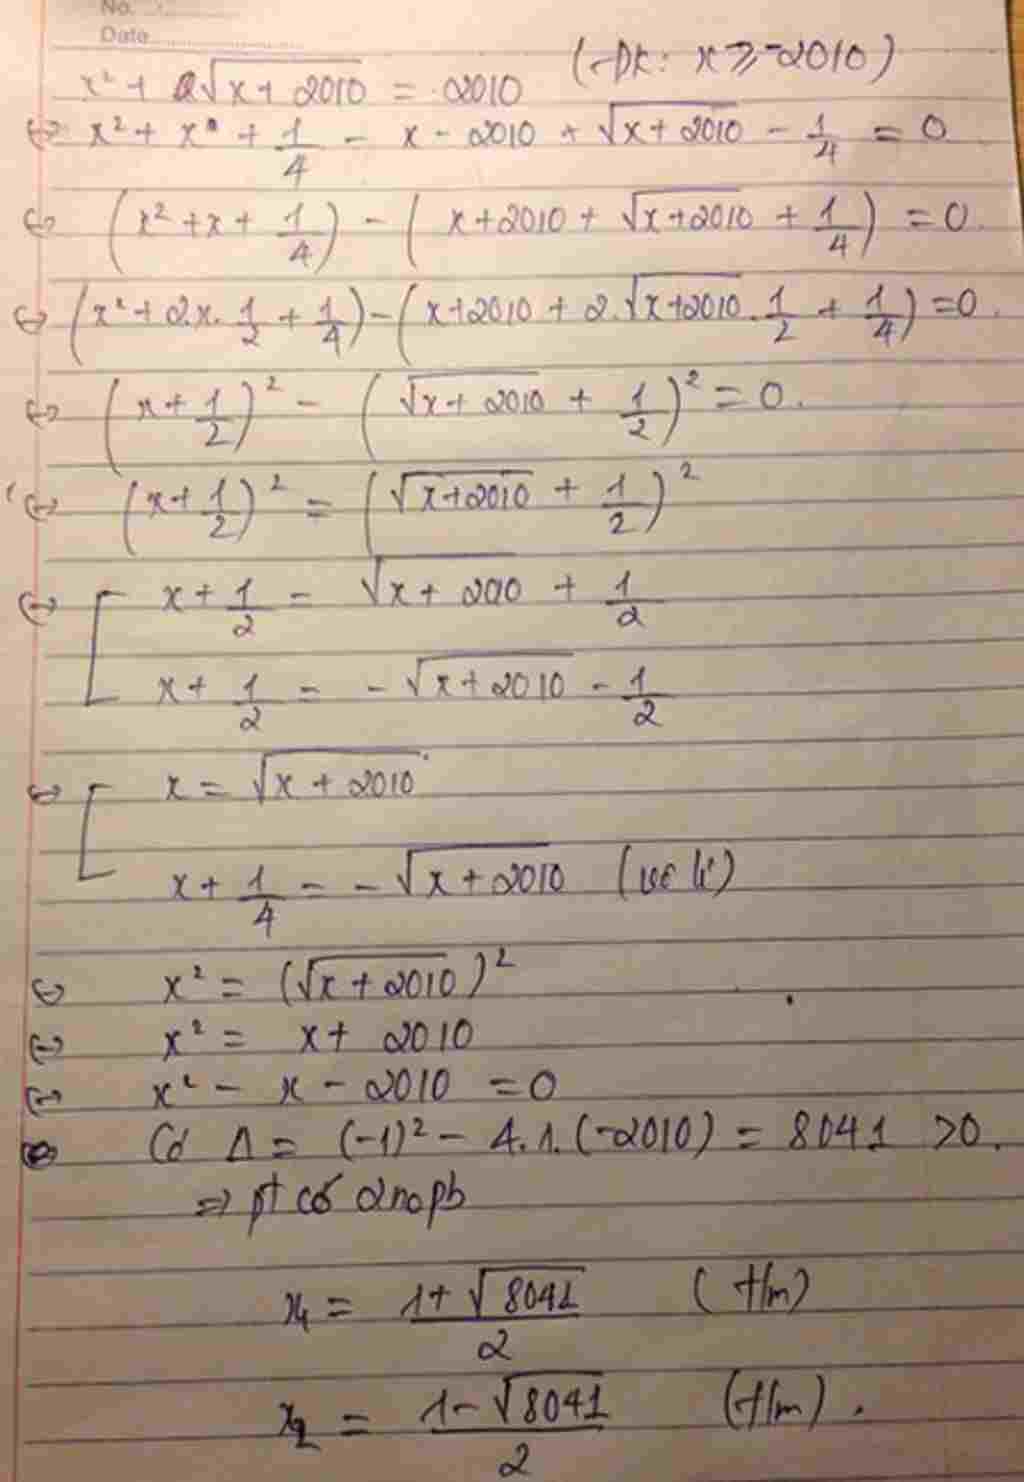 No.
Date
x² + 2√(x + 2010) = 2010 (ĐK: x ≥ -2010)
⇔ x² + x + 1/4 - x - 2010 + √(x + 2010) - 1/4 = 0
⇔ (x² + x + 1/4) - (x + 2010 + √(x + 2010) + 1/4) = 0.
⇔ (x² + 2.x.1/2 + 1/4) - (x + 2010 + 2.√(x + 2010).1/2 + 1/4) = 0.
⇔ (x + 1/2)² - (√(x + 2010) + 1/2)² = 0.
⇔ (x + 1/2)² = (√(x + 2010) + 1/2)²
⇔ [ x + 1/2 = √(x + 2010) + 1/2
x + 1/2 = -√(x + 2010) - 1/2
⇔ [ x = √(x + 2010)
x + 1/4 = -√(x + 2010) (vô lí)
⇔ x² = (√(x + 2010))²
⇔ x² = x + 2010
⇔ x² - x - 2010 = 0
Có Δ = (-1)² - 4.1.(-2010) = 8041 > 0.
⇒ pt có 2 nopb
x₁ = (1 + √8041)/2 (t/m)
x₂ = (1 - √8041)/2 (t/m).